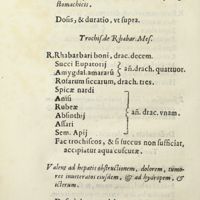 stomachicis.
Dosis, & duratio, vt supra.
Trochisc. de Rhabar. Mes.
R. Rhabarbari boni, drac. decem.
Succi Eupatorij
Amygdal. amararũ
añ. drach. quattuor.
Rosarum siccarum, drach. tres.
Spicæ nardi
Anisi
Rubeæ
Absinthij
Assari
Sem. Apij
añ. drac. vnam.
Fac trochiscos, & si succus non sufficiat,
accipiatur aqua cuscutæ.
Valent ad hepatis obstructionem, dolorem, tumo-
res inueteratos eiusdem, & ad hydropem, &
icterum.